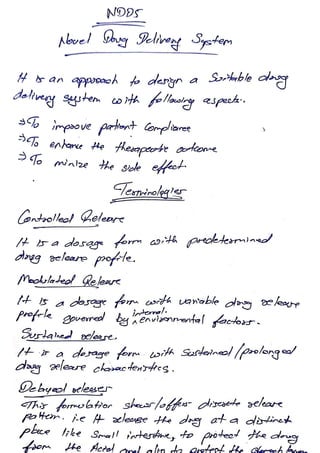 NDDS
Novel Drug Delivery System
It is an approach to design a Suitable drug
delivery system with following aspects.
⇒ To improve patient compliance
⇒ To enhance the therapeutic outcome
⇒ To minize the side effect.
Terminologies
Controlled Release
It is a dosage form with predetermined
drug release profile.
Modulated Release
It is a dosage form with variable drug release
profile governed by internal/environmental factors.
Sustained release.
It is a dosage form with Sustained/prolonged
drug release characteristics.
Delayed releases
This formulation shows/offers discrete release
pattern. i.e It release the drug at a distinct
place like Small intestine, to protect the drug
from the Acid and also to protect the